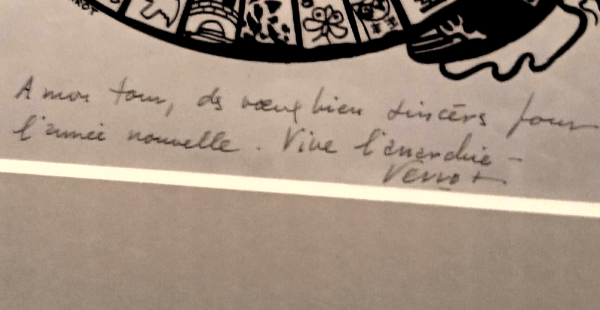 A mon tour, des vœux bien sincères pour
l'année nouvelle. Vive l'anarchie –